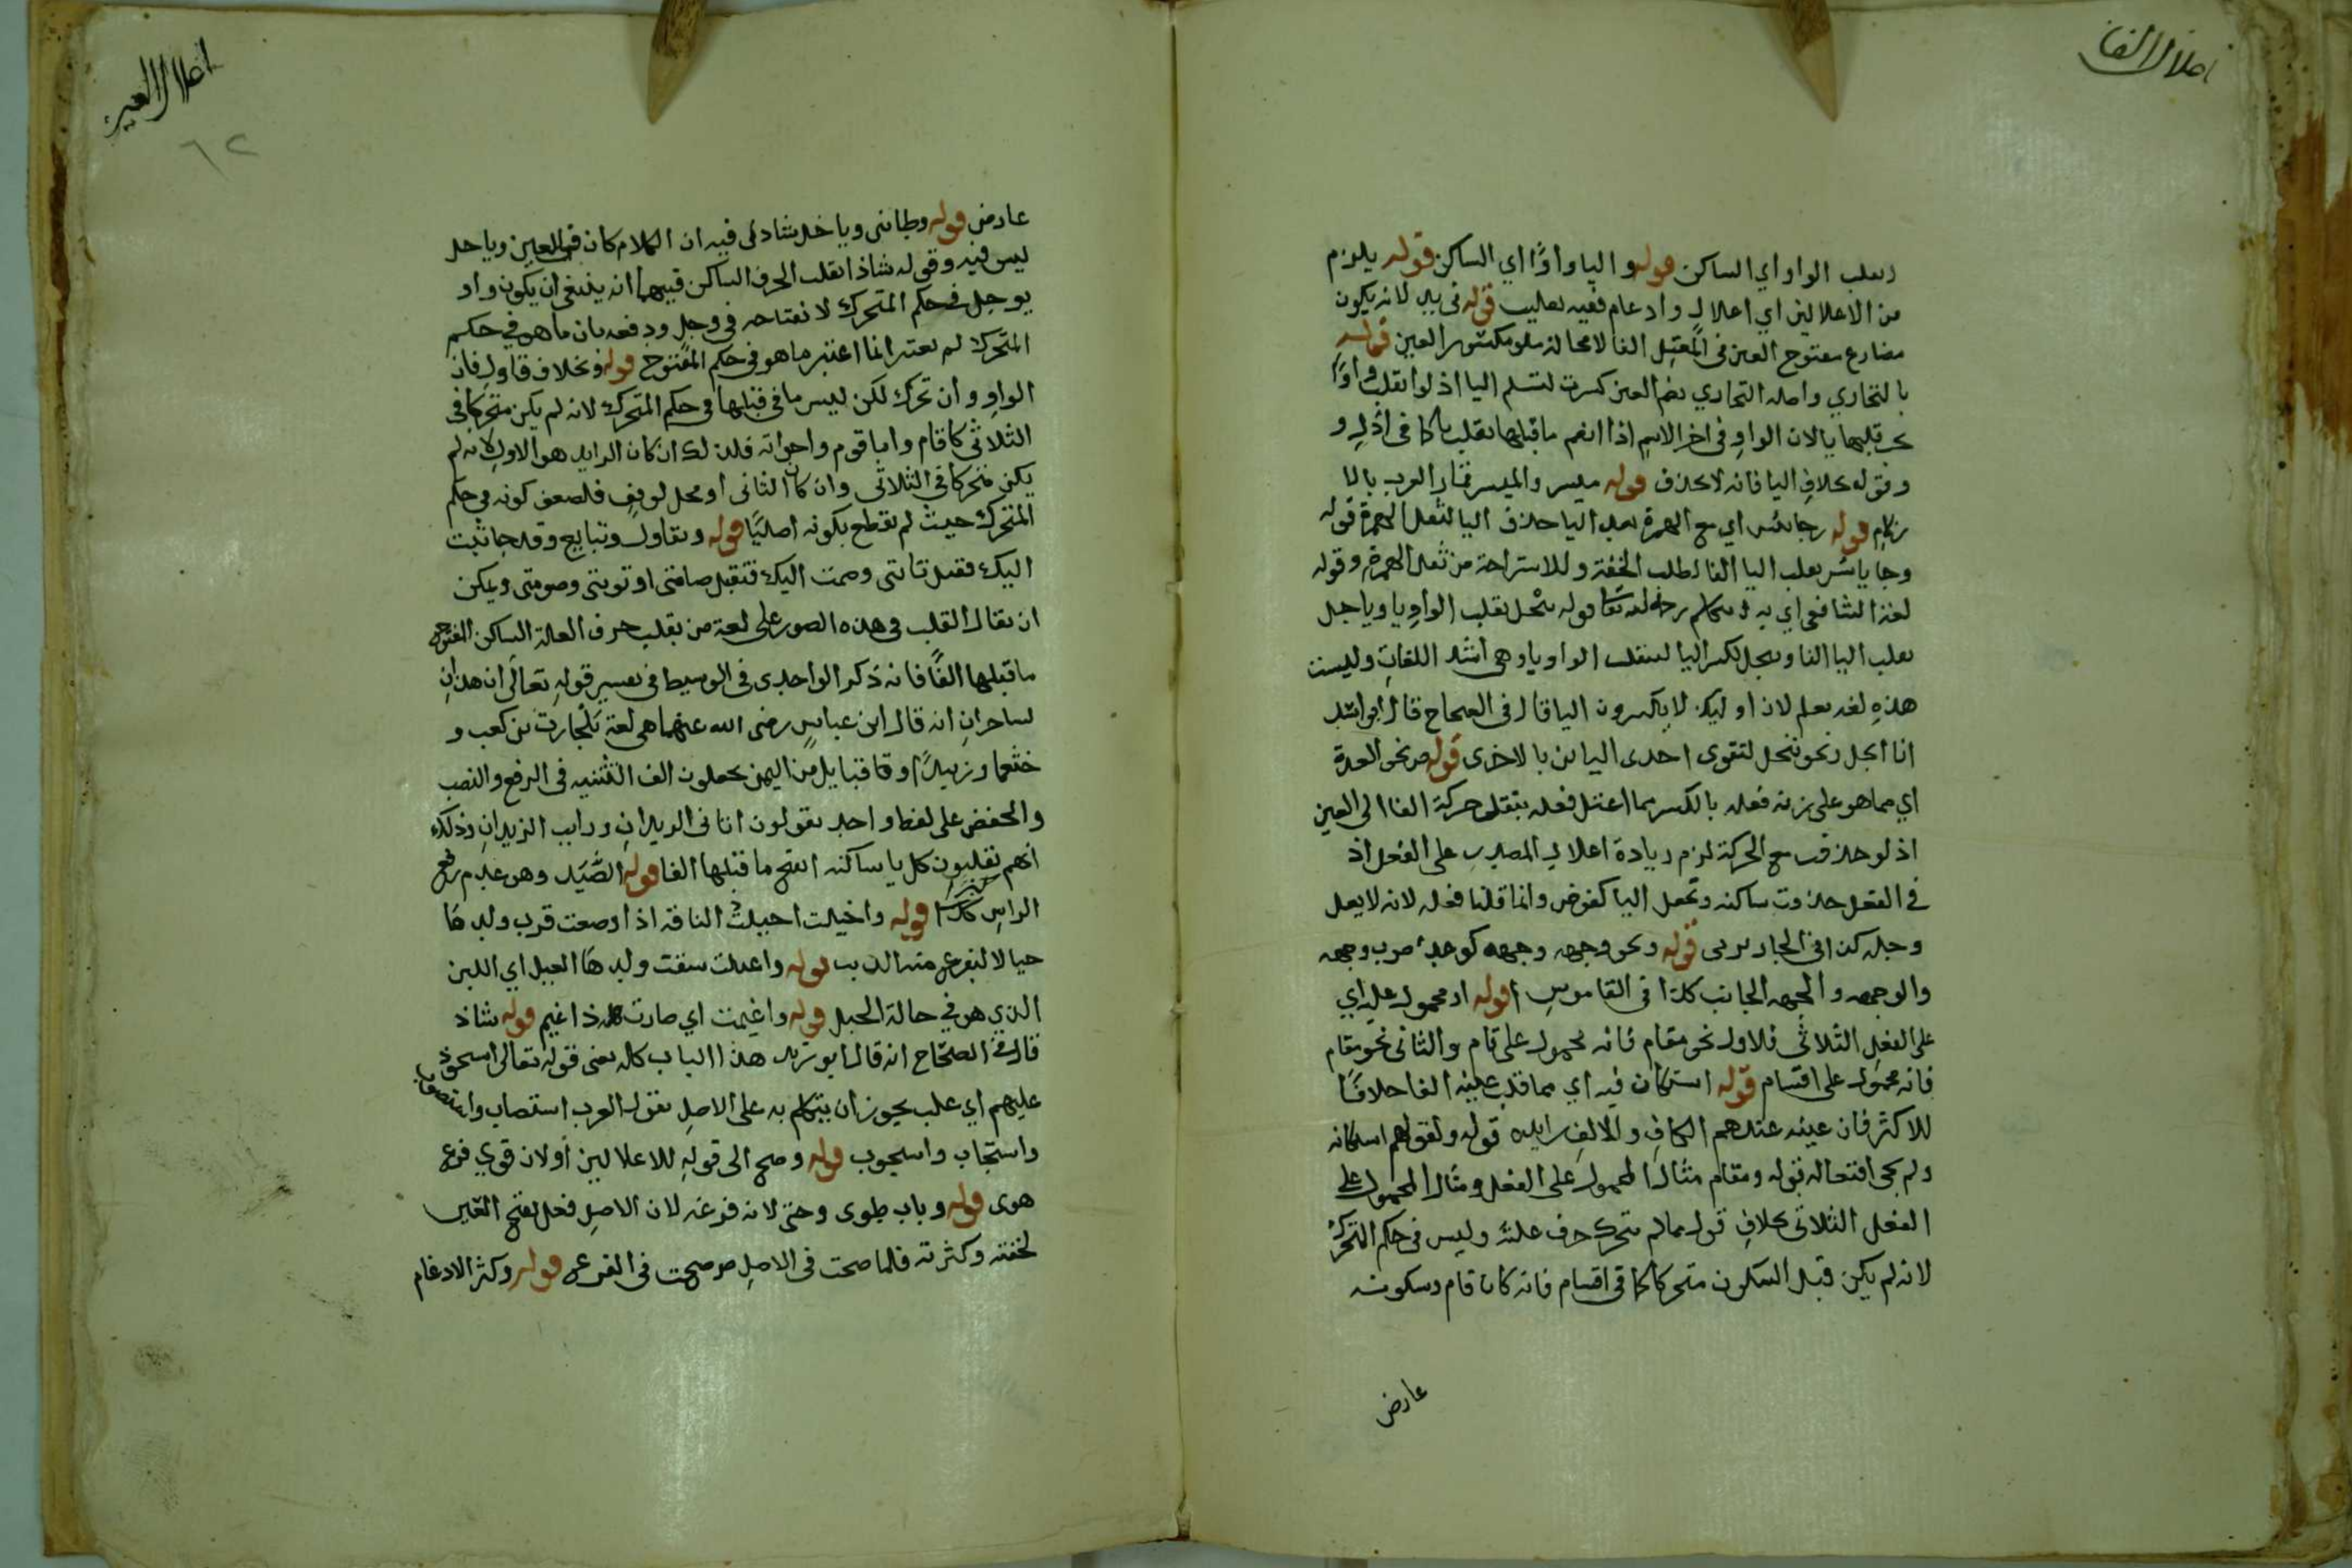 اعلال الفا
وتقلب الواو اي الساكن قوله و اليا واوًا اي الساكن قوله يلزم
من الاعلالين اي اعلال وادغام ففيه تغليب قوله في ييد لانه يكون
مضارع مفتوح العين في المعتل الفا لا محالة ملو مكسور العين قوله
بالتجاري واصله التجاري بضم العين كسرت لتسلم اليا اذ لو انقلب واوًا
قلبها يا لان الواو في اخر الاسم اذا انضم ما قبلها تقلب يا كما في ادل و
وقوله بخلاف اليا فانه لا يحذف قوله ميسر والميسر قمار العرب بالا
زلام قوله وجا يئس اي مع الهمزة بعد اليا حذف اليا لثقل الهمزة قوله
وجا يائس بقلب اليا الفا لطلب الخفة وللاستراحة من ثقل الهمزة وقوله
لغة الشافعي اي به يتكلم رحمه الله تعا قوله ييجل بقلب الواو يا وياجل
بقلب اليا الفا وييجل بكسر اليا لينقلب الواو يا وهي اشد اللغات وليست
هذه لغة يعلم لان اوليك لا يكسرون اليا قال في الصحاح قال ابو اسد
انا ايجل ونحو نيجل لتقوى احدى اليائين بالاخرى قوله من نحو العدة
اي مما هو على زنة فعلة بالكسر مما اعتل فعله بنقل حركة الفا الى العين
اذ لو حذفت مع الحركة لزم زيادة اعلال المصدر على الفعل اذ
في الفعل حذفت ساكنة وتجعل اليا كعوض وانما قلنا فعله لانه لا يعل
وجله كذا في الجاربردى قوله ونحو وجهه وجهه كوعد ضرب وجهه
والوجهة والجهة الجانب كذا في القاموس قوله او محمول عليه اي
على الفعل الثلاثي فالاول نحو مقام فانه محمول على قام والثاني نحو مقام
فانه محمول على اقسام قوله استكان فيه اي مما قلب عينه الفا خلافًا
للاكثر فان عينه عندهم الكاف والالف زايدة قوله ولقولهم استكانة
ولم يجى افتعالة بقوله ومقام مثال المحمول على الفعل ومثال المحمول على
الفعل الثلاثي بخلاف قول مما لم يتحرك حرف علته وليس في حكم المتحرك
لانه لم يكن قبل السكون متحركا كما في اقسام فانه كان قام وسكونه
عارض
اعلال العين
٦٢
عارض قوله وطائى وياجل شاذ لى فيه ان الكلام كان في العين وياجل
ليس فيه وقوله شاذ انقلب الحرف الساكن فيهما انه ينبغى ان يكون واو
يوجل في حكم المتحرك لانفتاحه في وجل ودفعه بان ما هو في حكم
المتحرك لم يعتبر انما اعتبر ما هو في حكم المفتوح قوله وبخلاف قاول فان
الواو وان تحرك لكن ليس ما في قبلها في حكم المتحرك لانه لم يكن متحركا في
الثلاثي كما قام واما قوم واخواته فلذلك ان كان الزايد هو الاول لانه لم
يكن متحركا في الثلاثي وان كان الثاني او محل توقف فلضعف كونه في حكم
المتحرك حيث لم يقطع بكونه اصليًا قوله وتقاول وتبايع وقد جا ثبت
اليك فقبل تابتى وصمت اليك فتقبل صامتى او توبتى وصومتى ويمكن
ان يقال القلب في هذه الصور على لغة من يقلب حرف العلة الساكن المفتوح
ما قبلها الفًا فانه ذكر الواحدى في الوسيط في تفسير قوله تعالى ان هذان
لساحران انه قال ابن عباس رضى الله عنهما هى لغة بلحارث بن كعب و
خثعما وزبيدًا وقا قبايل من اليمن يجعلون الف التثنية في الرفع والنصب
والخفض على لفظ واحد يقولون اتانى الزيدان ورايت الزيدان وذلك
انهم يقلبون كل يا ساكنة انفتح ما قبلها الفا قوله الصَّيَد وهو عدم رفع
الراس كبرا قوله واخيلت اخيلت الناقة اذا وضعت قرب ولدها
خيالا ليفزع منه الذيب قوله واغيلت سقت ولدها الغيل اي اللبن
الذي هو في حالة الحبل قوله واغيمت اي صارت ذا غيم قوله شاذ
قال في الصحاح انه قال ابو زيد هذا الباب كله يعنى قوله تعالى استحوذ
عليهم اي غلب يجوز ان يتكلم به على الاصل تقول العرب استصاب واستصوب
واستجاب واستجوب قوله وصح الى قوله للاعلالين أو لان قوي فرع
هوى قوله وباب طوى وحيى لانه فرعه لان الاصل فعل بفتح العين
لخفته وكثرته فلما صحت في الاصل صحت في الفرع قوله وكثر الادغام